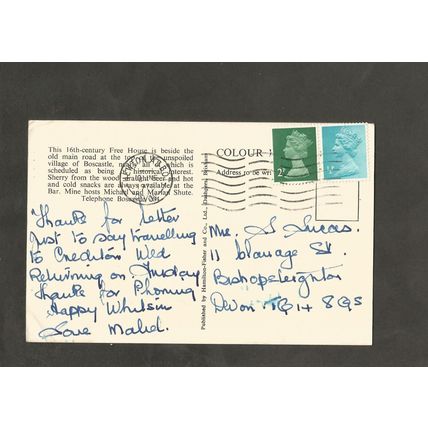 This 16th-century Free House is beside the
old main road at the top of the unspoiled
village of Boscastle, nearly all of which is
scheduled as being of historical interest.
Sherry from the wood, draught beer and hot
and cold snacks are always available at the
Bar. Mine hosts Michael and Marian Shute.
Telephone Boscastle
COLOUR
Address to be
Published by Hamilton-Fisher and Co., Ltd.,
Thanks for letter
Just to say travelling
to Crediton Wed
Returning on
thanks for Phoning
Happy Whitsun
Love
S Lucas.
11 St.
Bishopsteignton
Devon TQ14 8QS